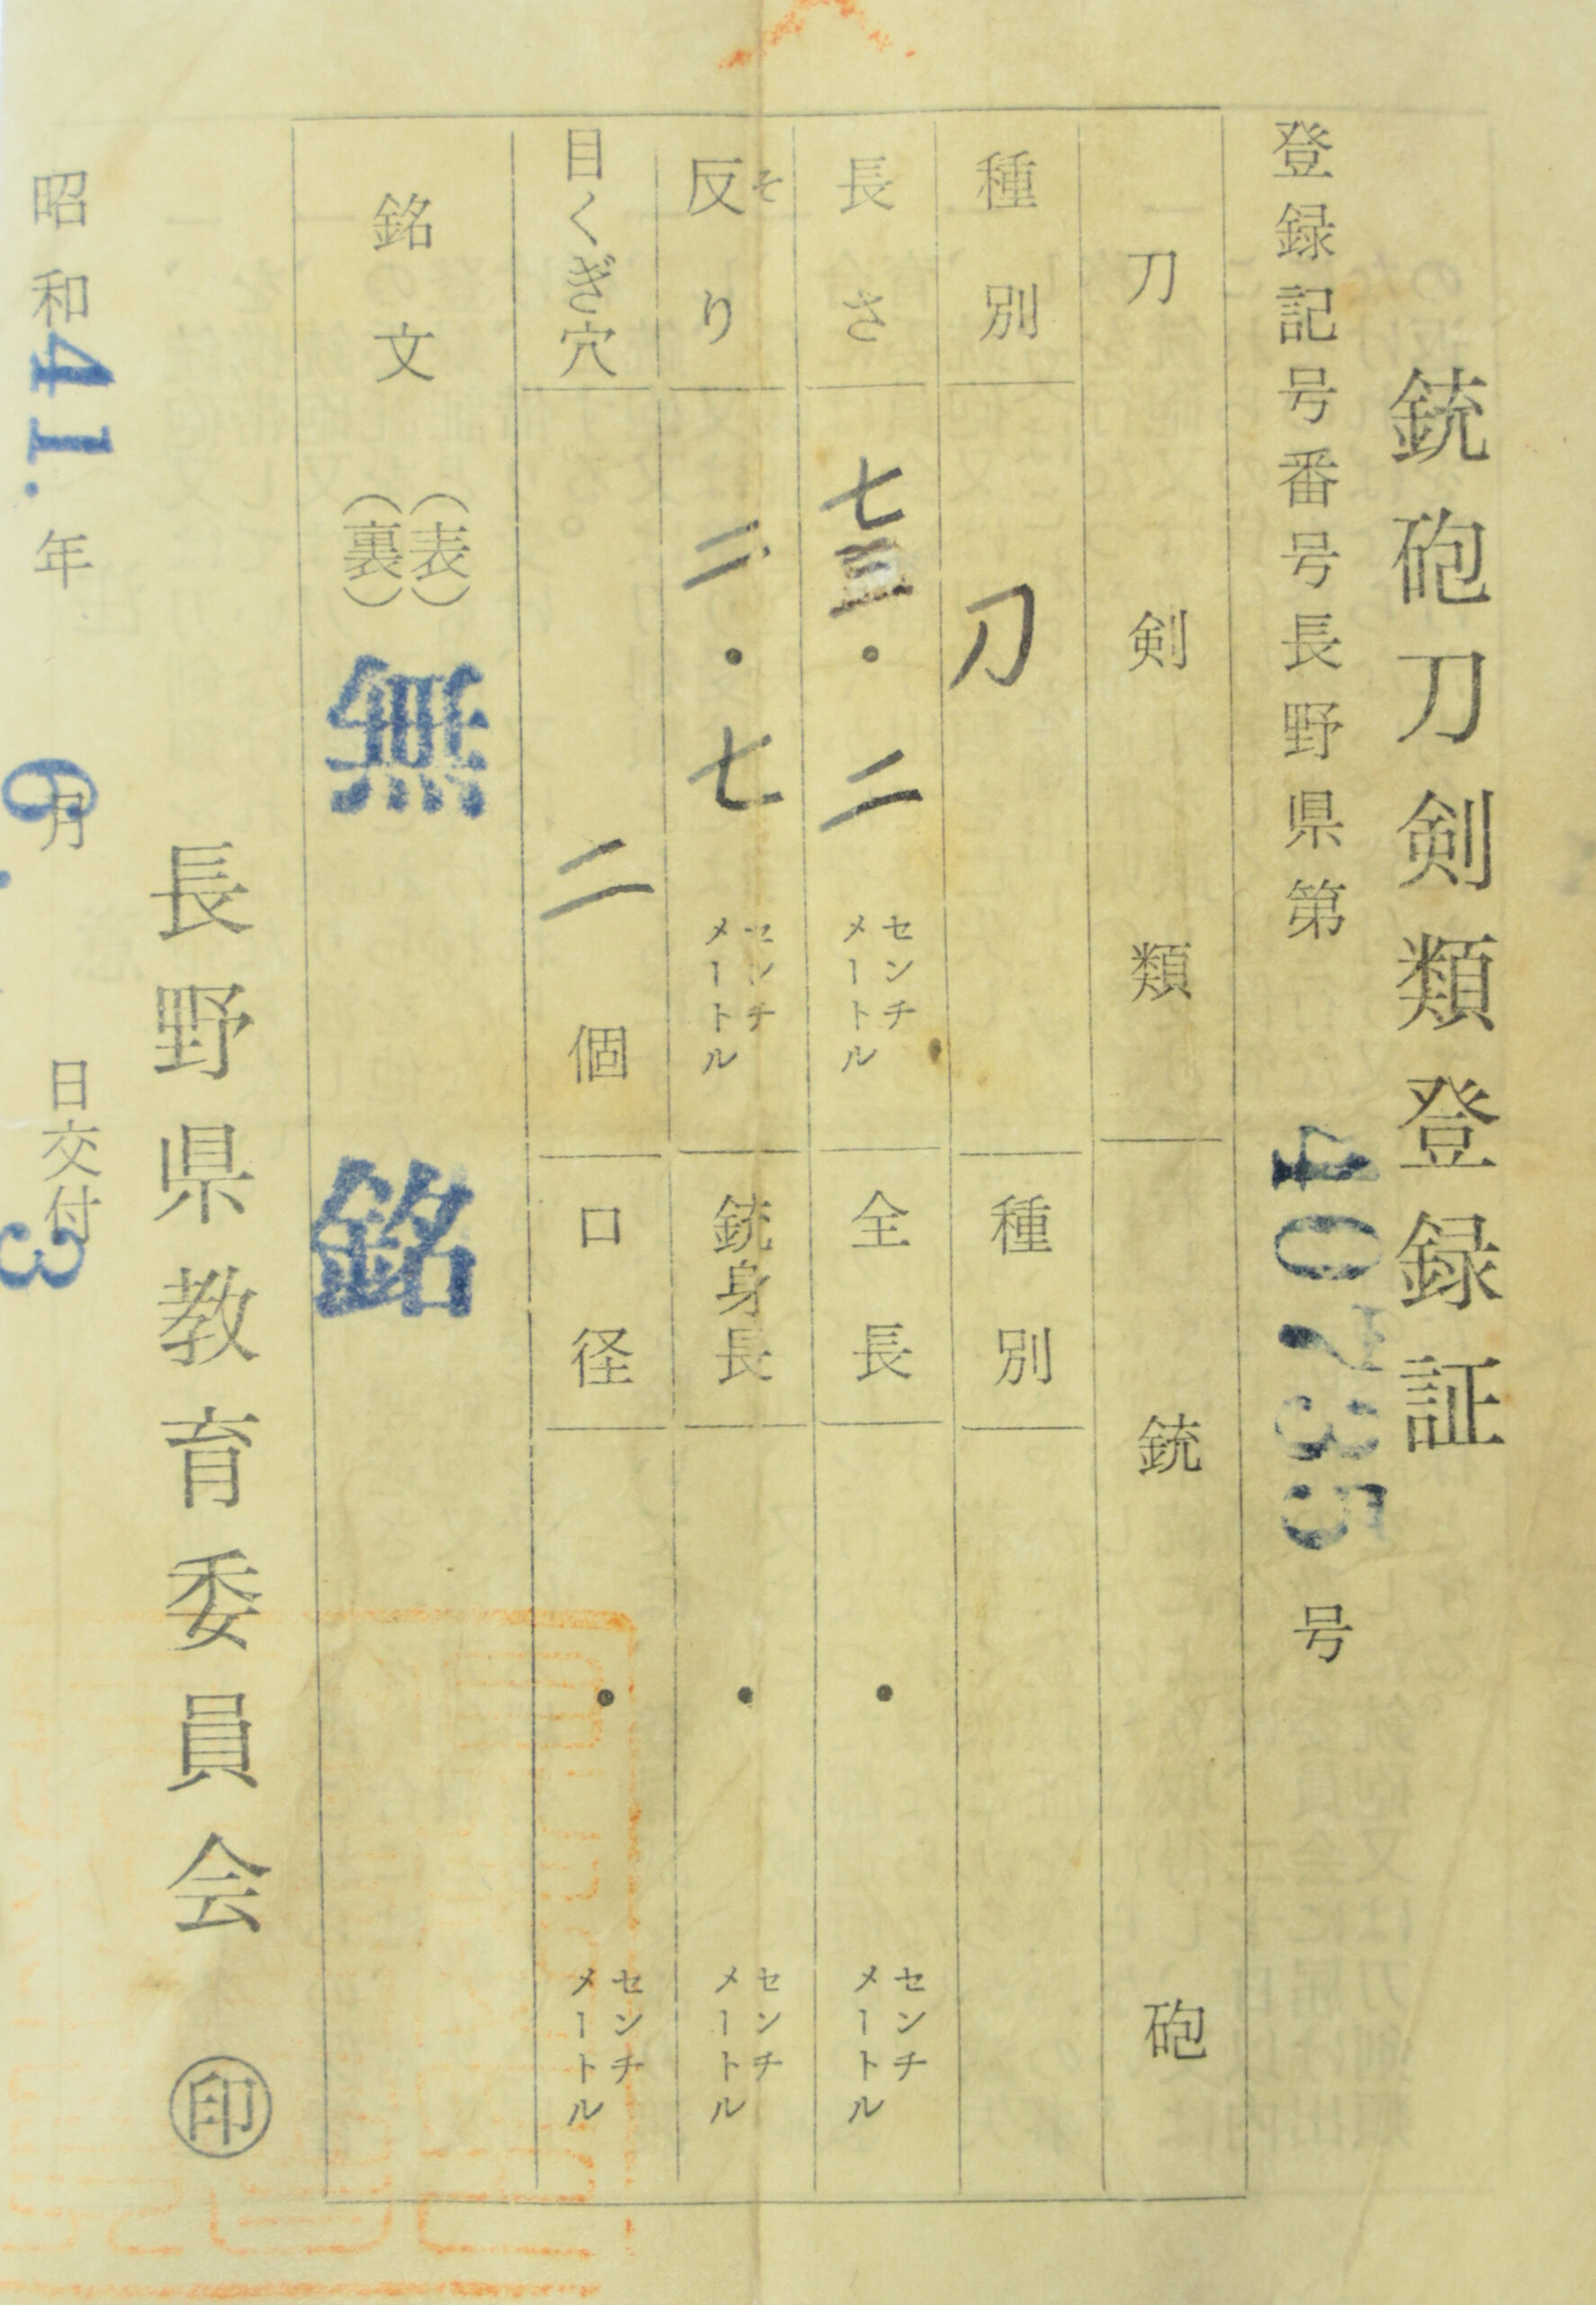 銃砲刀剣類登録証
登録記号番号長野県第 40735 号
刀剣類 銃砲
種別 刀 種別
長さ 七三・二 センチメートル 全長 ・ センチメートル
反り そ 二・七 センチメートル 銃身長 ・ センチメートル
目くぎ穴 二 個 口径 ・ センチメートル
銘文 (表) (裏) 無銘
長野県教育委員会 ㊞
昭和41.年 6.月 3日交付